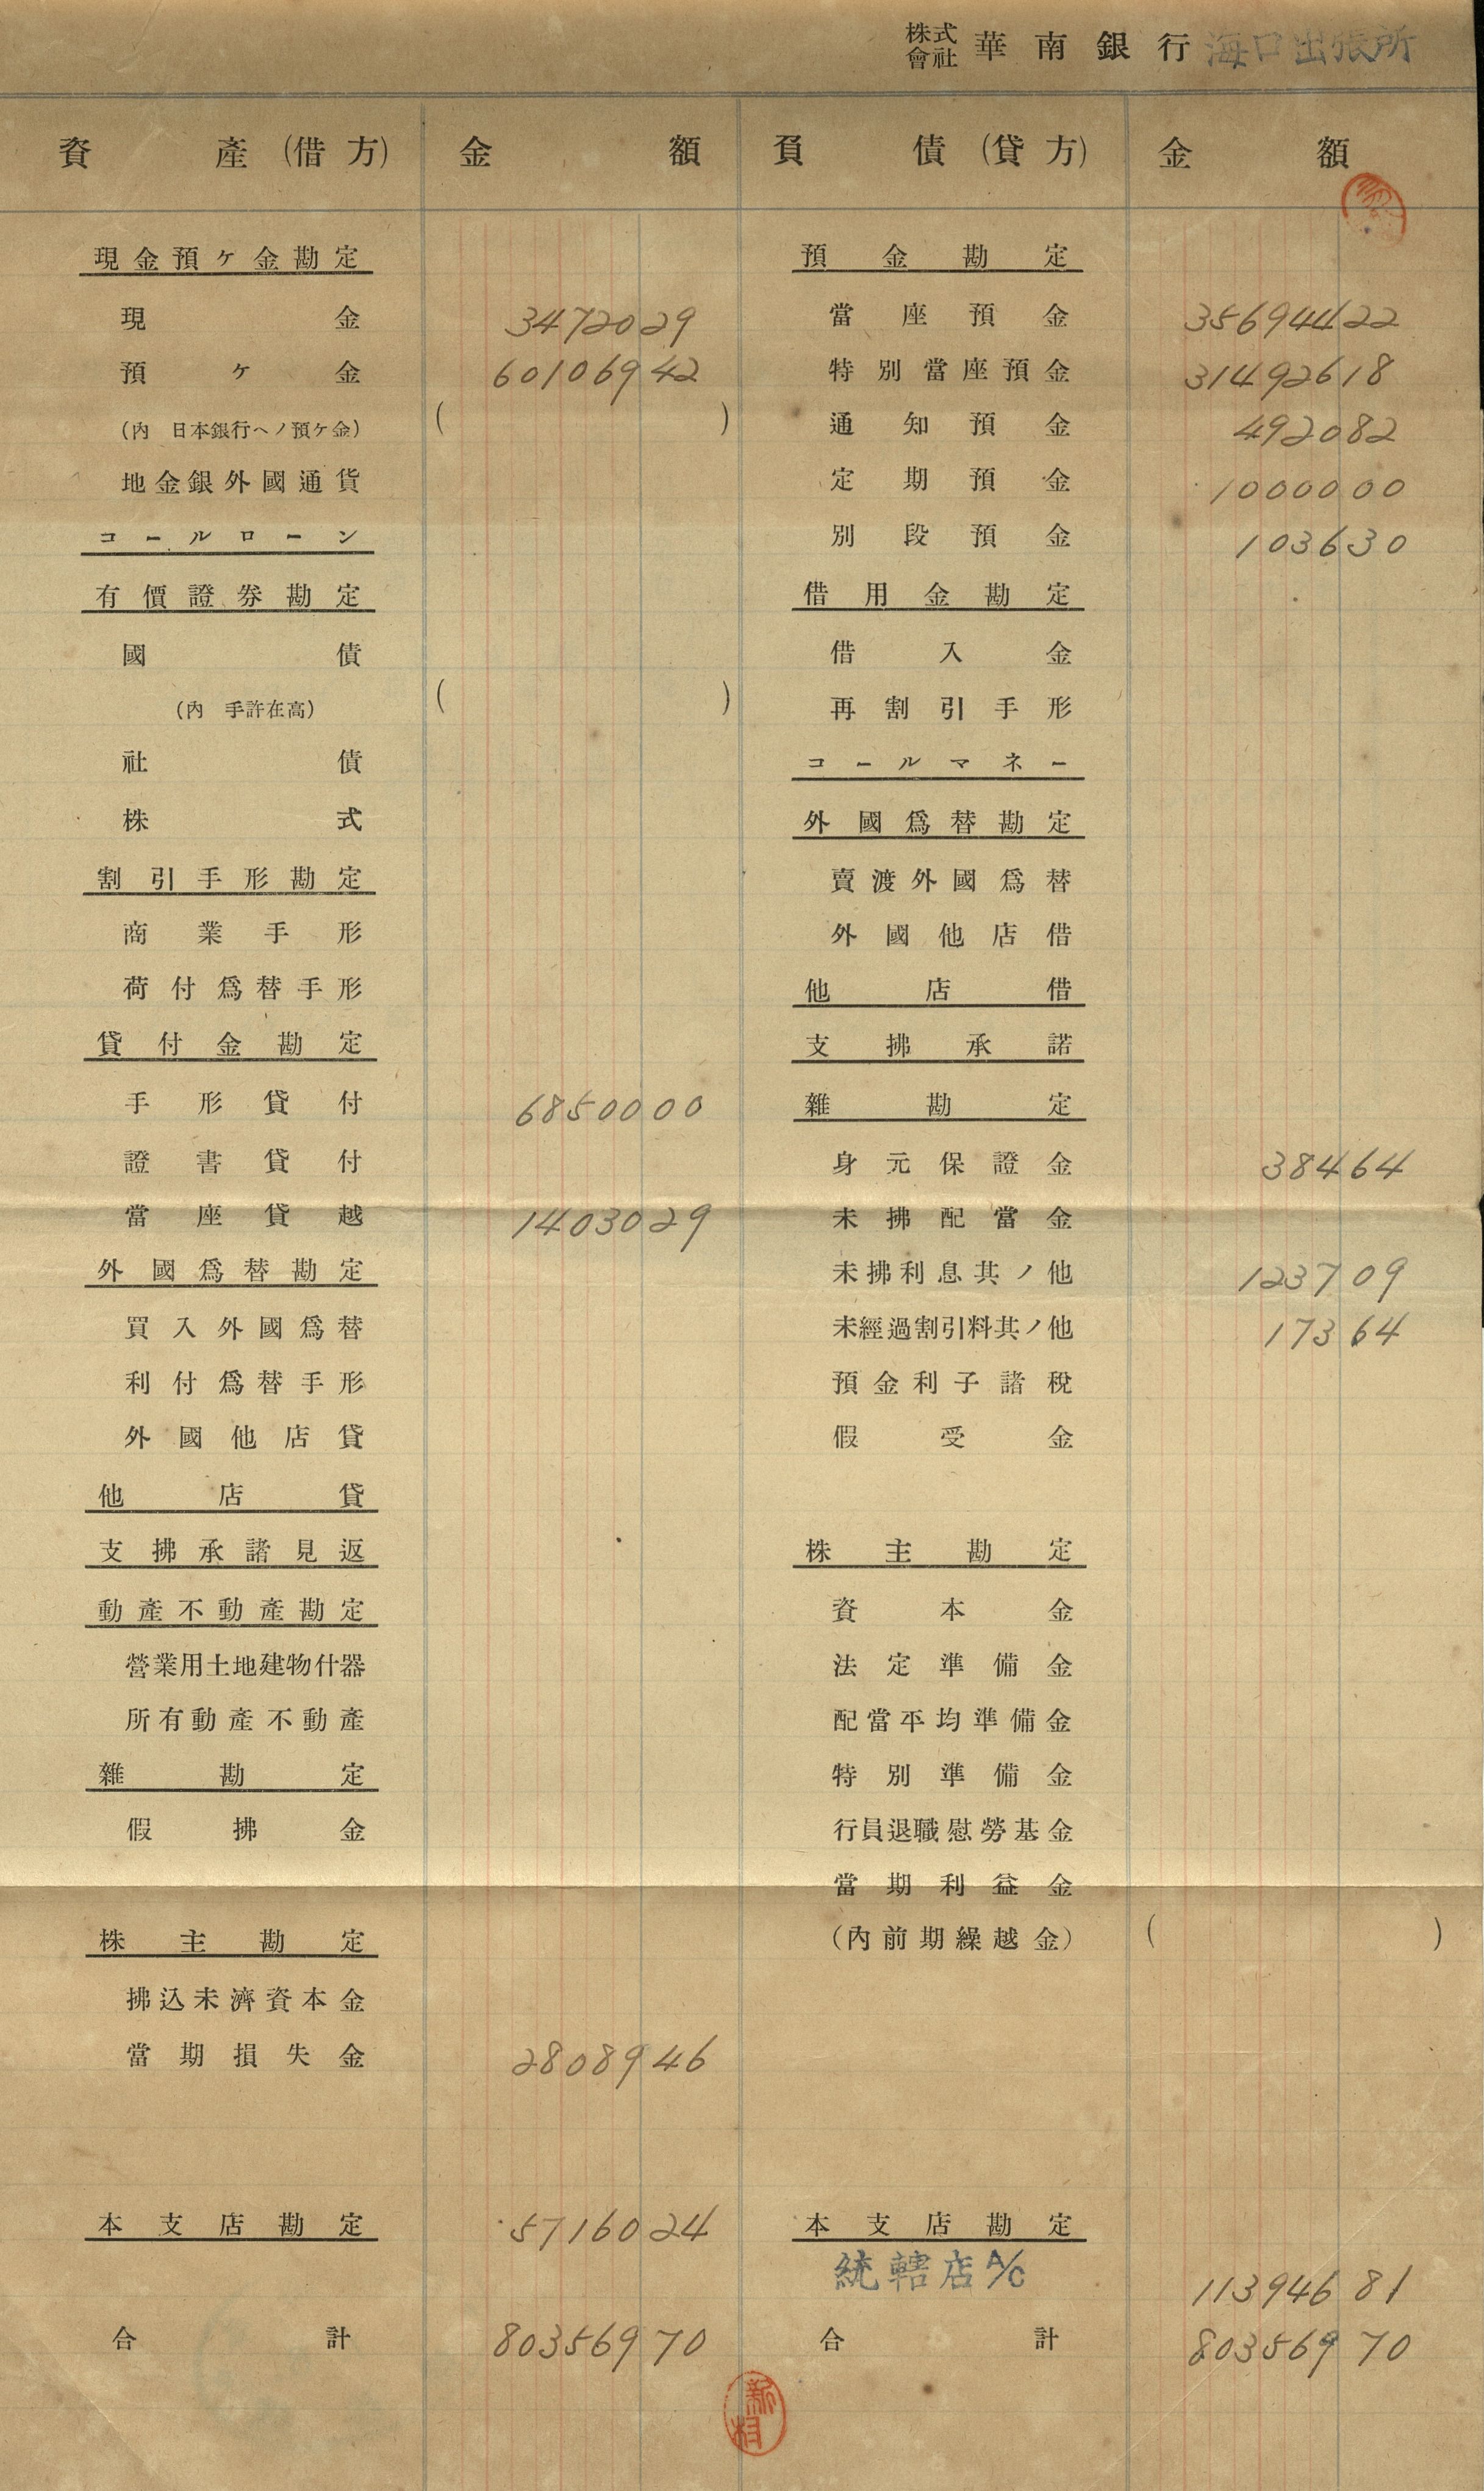 株式會社 華南銀行 海口出張所
資產(借方) 金額
現金預ケ金勘定
現金 3472029
預ケ金 60106942
(內 日本銀行ヘノ預ケ金) ( )
地金銀外國通貨
コールローン
有價證券勘定
國債
(內 手許在高) ( )
社債
株式
割引手形勘定
商業手形
荷付爲替手形
貸付金勘定
手形貸付 6850000
證書貸付
當座貸越 1403029
外國爲替勘定
買入外國爲替
利付爲替手形
外國他店貸
他店貸
支拂承諾見返
動產不動產勘定
營業用土地建物什器
所有動產不動產
雜勘定
假拂金
株主勘定
拂込未濟資本金
當期損失金 2808946
本支店勘定 5716024
合計 80356970
負債(貸方) 金額
預金勘定
當座預金 35694422
特別當座預金 31492618
通知預金 492082
定期預金 1000000
別段預金 103630
借用金勘定
借入金
再割引手形
コールマネー
外國爲替勘定
賣渡外國爲替
外國他店借
他店借
支拂承諾
雜勘定
身元保證金 38464
未拂配當金
未拂利息其ノ他 123709
未經過割引料其ノ他 17364
預金利子諸稅
假受金
株主勘定
資本金
法定準備金
配當平均準備金
特別準備金
行員退職慰勞基金
當期利益金
(內前期繰越金) ( )
本支店勘定
統轄店A/C 11394681
合計 80356970
新村